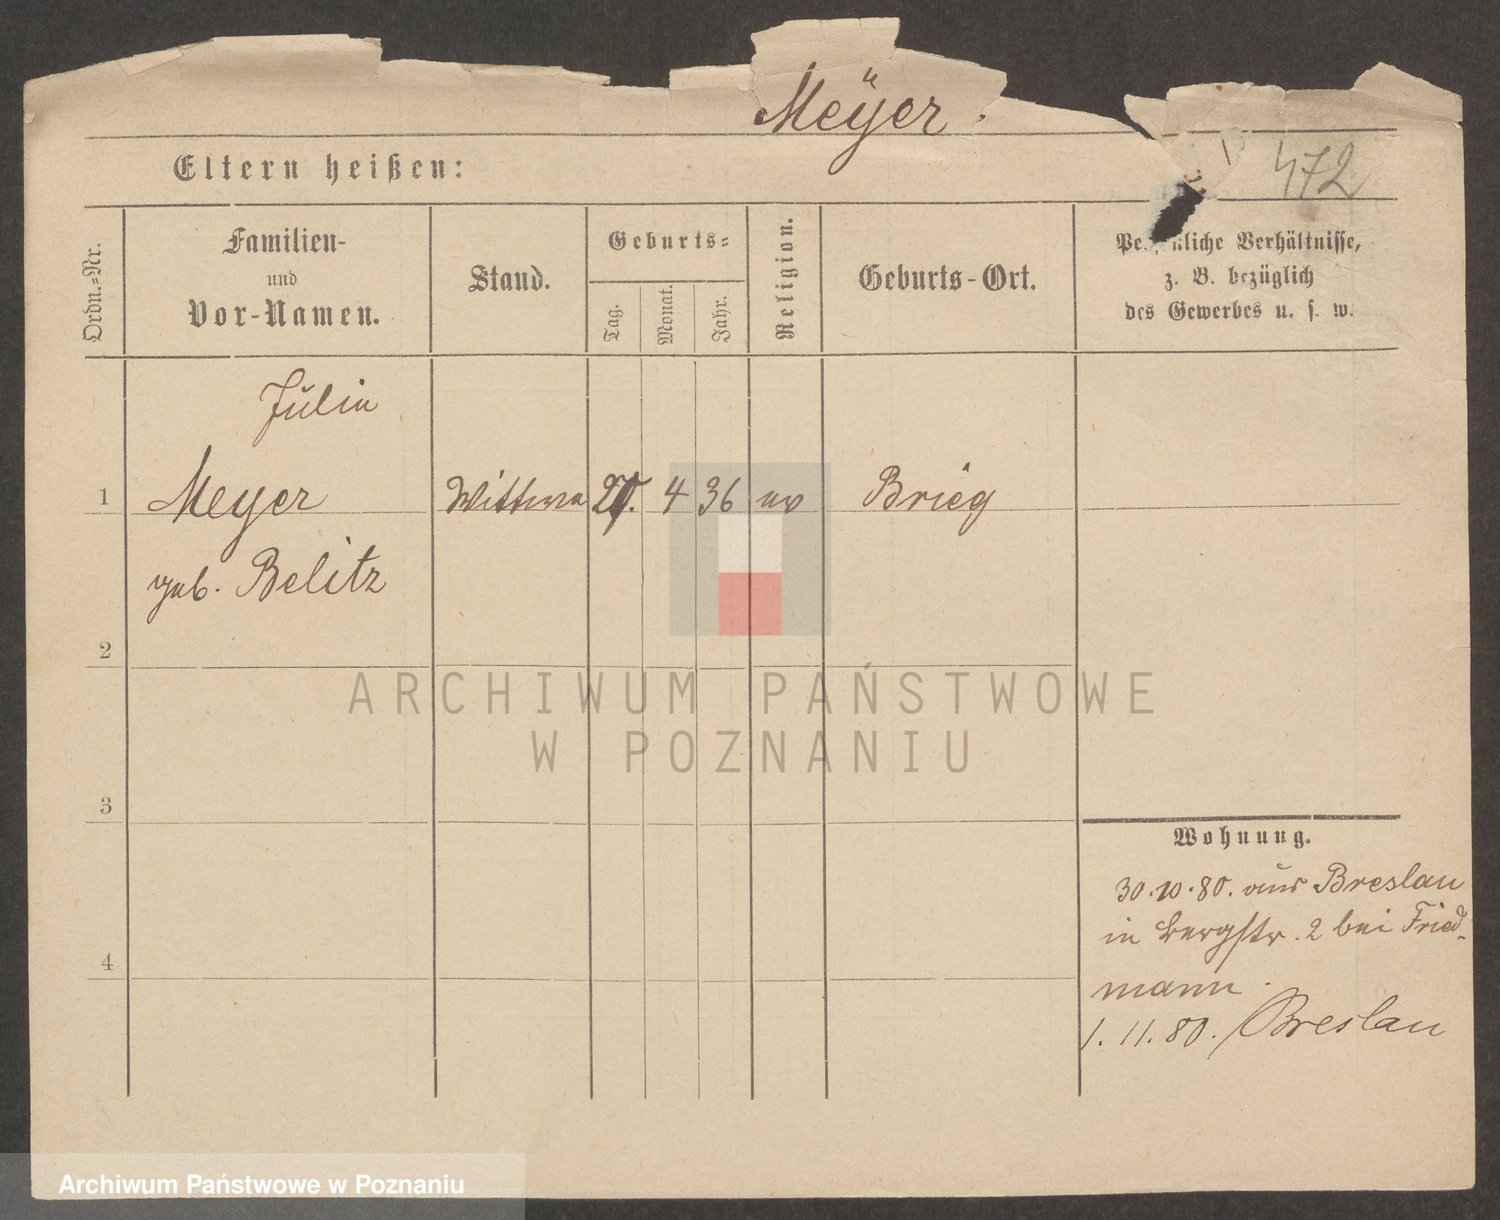 Meÿer.
472
Eltern heißen:
Ordn.-Nr.
Familien-
und
Vor-Namen.
Stand.
Geburts-
Tag.
Monat.
Jahr.
Religion.
Geburts-Ort.
Persönliche Verhältnisse,
z. B. bezüglich
des Gewerbes u. s. w.
Julie
1 Meyer Wittwe 4 36 ev Brieg
geb. Belitz
2
ARCHIWUM PAŃSTWOWE
W POZNANIU
3
4
Wohnung.
30.10.80. aus Breslau
in Bergstr. 2 bei Fried-
mann.
1.11.80. Breslau
Archiwum Państwowe w Poznaniu